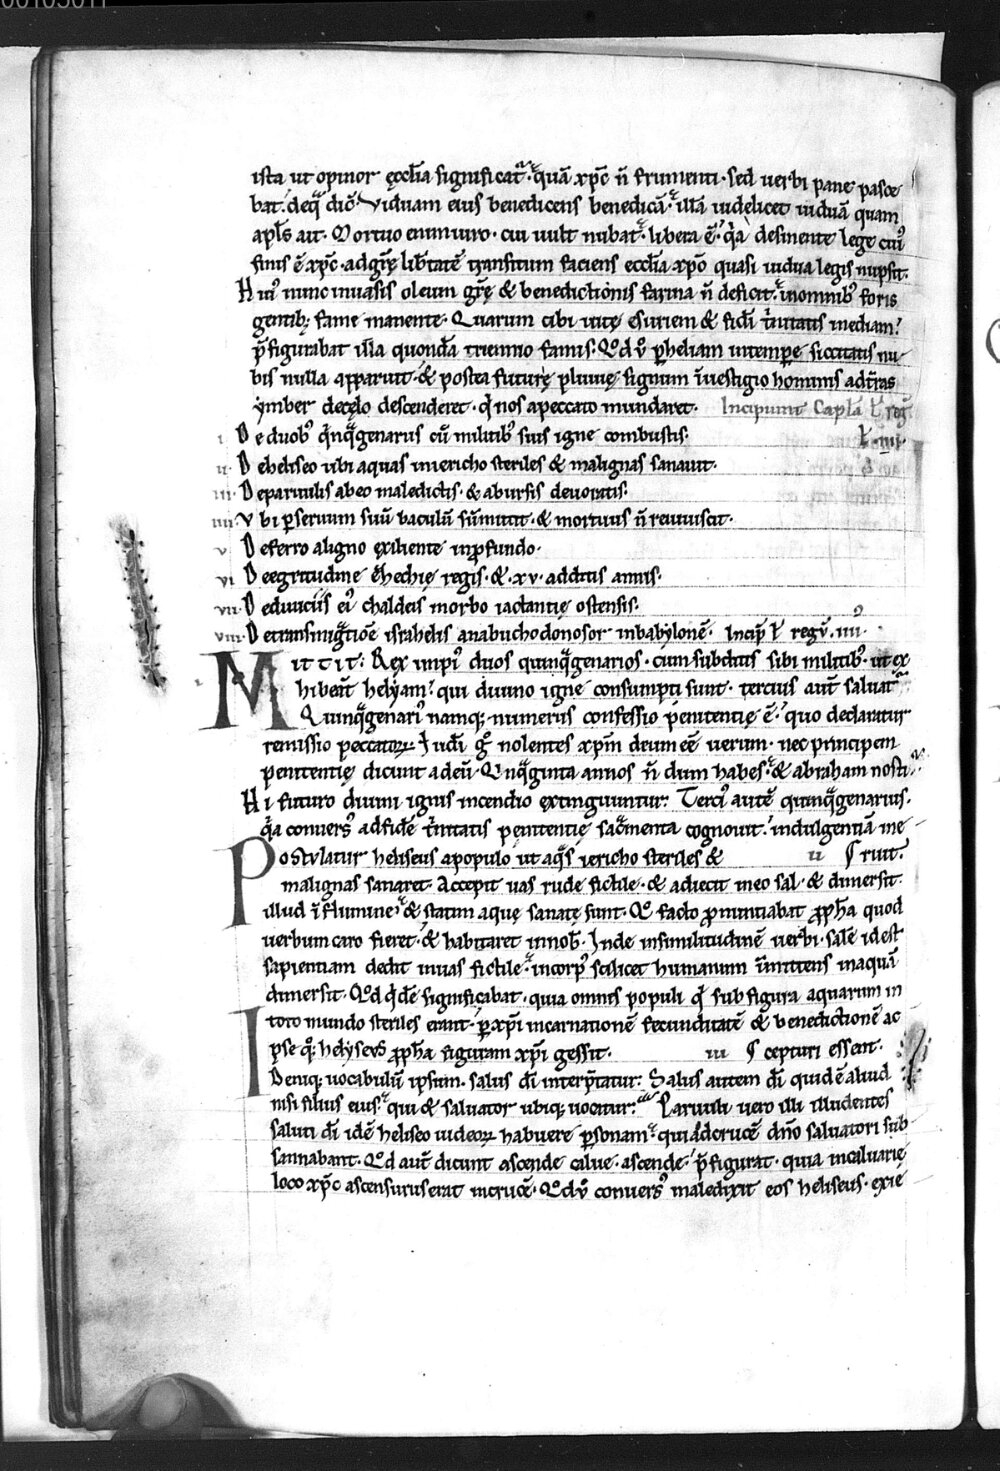 ista ut opinor ęccl̄ia significat᷑. quā xp̄c n̄ frumenti. sed uerbi pane pasce
bat. de q̄ dic̄. Viduam eius benedicens benedicā. illā uidelicet uiduā quam
apl̄s ait. Mortuo enim uiro. cui uult nubat. libera ē. q̇a desinente lege cuiꝰ
finis ē xp̄c. ad gr̄ę lib̄tatē transitum faciens ecclia xp̄o quasi uidua legis nupsit.
Huiꝰ nunc in uasis oleum gr̄ę & benedictionis farina n̄ deficit. in omnibꝰ foris
gentibꝫ fame manente. Quarum cibi uitę esuriem & fidei t̄nitatis inediam.
p̄figurabat illa quondā triennio famis. Qd ū ꝑ heliam intempe siccitatis nu
bis nulla apparuit. & postea futurę pluuię signum ī uestigio hominis ad t̄ras
ymber de cęlo descenderet. q̄ nos a peccato mundaret. Incipiunt Capl̄a ł reg̃
ł. iiii.
i. De duobꝰ q̇nq̄genarus cū militibꝰ suis igne combustis.
ii. De heliseo ubi aquas in iericho steriles & malignas sanauit.
iii. De paruulis ab eo maledictis. & ab ursis deuoratis.
iiii. Vbi ꝑ seruum suū baculū sūmittit. & mortuus n̄ reuiuiscit.
v De ferro a ligno exiliente in ꝓfundo.
vi De egritudine ezhechię regis. & .xv. additis annis.
vii. De diuiciis eiꝰ chaldeis morbo iactantię ostensis.
viii. De transmigratiōe israhelis a nabuchodonosor in babylonē. Incip̄ ł regū. iiiiꝰ.
Mittit Rex impiꝰ duos quinq̄genarios. cum subditis sibi militibꝰ. ut ex
hibeāt helyam. qui diuino igne consumpti sunt. tercius aut̄ saluat᷑.
Quinq̄genariꝰ namqꝫ numerus confessio penitentię ē. quo declaratur
remissio peccatoꝝ. Iudei g̊ nolentes xpm̄ deum eē uerum. nec principem
penitentię dicunt ad eū. Qnq̄ginta annos n̄ dum habes. & abraham nosti.
Hi futuro diuini ignis incendio extinguuntur. Terciꝰ autē quinq̄genarius.
q̇a conuersꝰ ad fidē t̄nitatis penitentię sac̄menta cognouit. indulgentiā me
Postulatur heliseus a populo ut aq̄s iericho steriles & ii ruit.
malignas sanaret. Accepit uas rude fictile. & adiecit in eo sal. & dimersit.
illud ī flumine. & statim aquę sanatę sunt. Qo facto ꝓnuntiabat ꝓph̄a quod
uerbum caro fieret. & habitaret in nob̄. Inde in similitudinē uerbi. salē id est
sapientiam dedit in uas fictile. in corpꝰ scilicet humanum īmittens in aquā
dimersit. Qd q̇dē significabat. quia omnis populi q̇ sub figura aquarum in
toto mundo steriles erant. ꝑ xp̄i incarnationē fecunditatē & benedictionē ac
Ipse qꝫ helyseus ꝓph̄a figuram xp̄i gessit. iii cepturi essent.
Deniqꝫ uocabulū ipsum. salus dī interp̄tatur. Salus autem dī quid ē aliud
nisi filius eius. qui & saluator ubiqꝫ uocatur. Paruuli uero illi illudentes
saluti dī idē heliseo iudeoꝝ habuere ꝑsonam. qui ad crucē dn̄o saluatori sub
sannabant. Qd aut̄ dicunt ascende calue. ascende. p̄figurat. quia in caluarię
loco xp̄c ascensurus erat in crucē. Qd ū conuersꝰ maledixit eos heliseus. exie